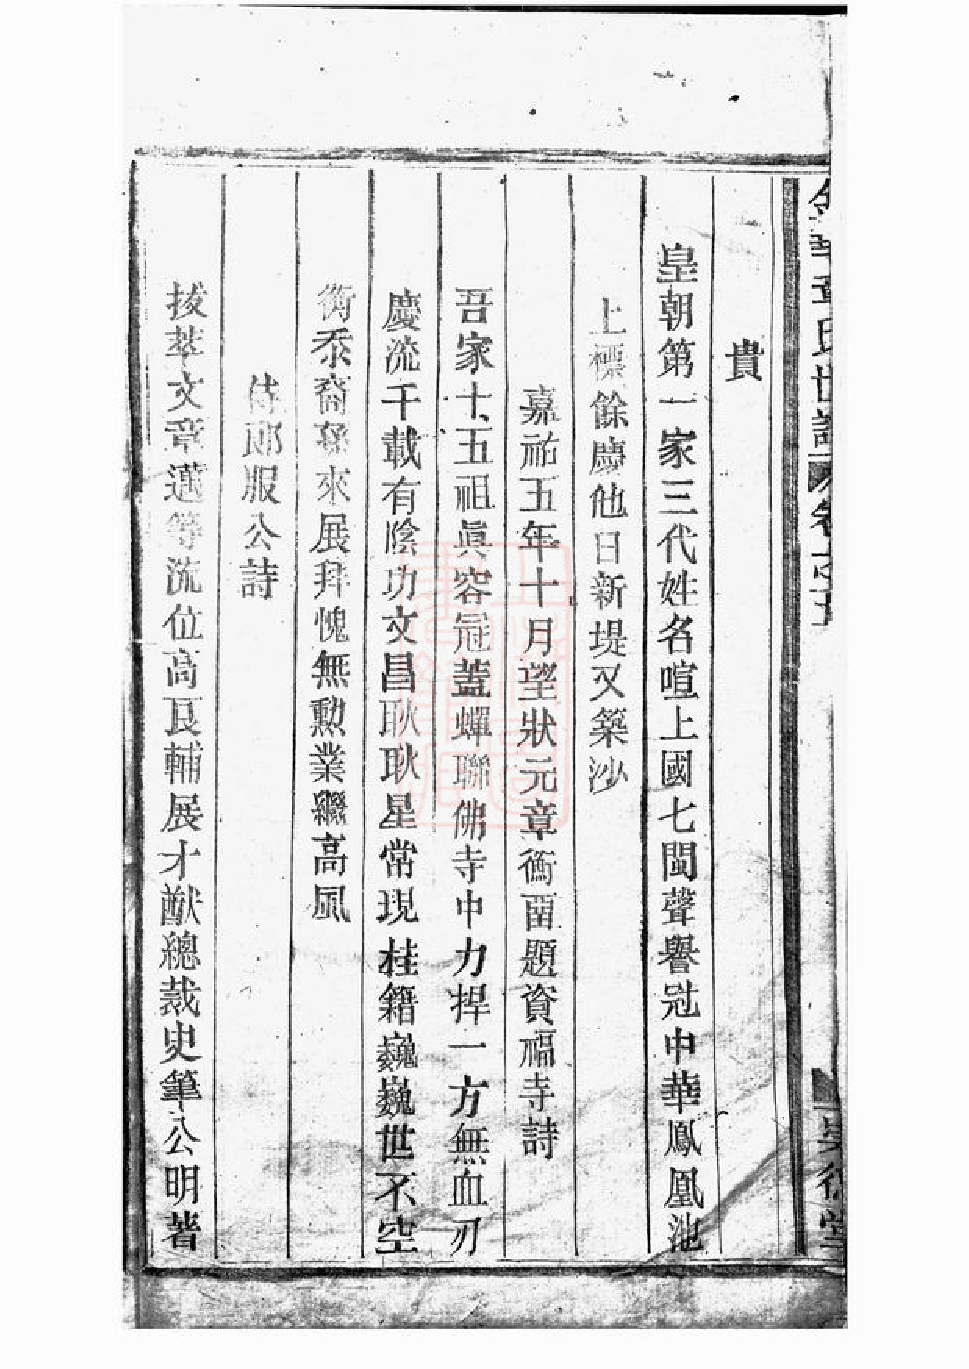 金華章氏世譜 卷之五
貴
皇朝第一家三代姓名喧上國七閩聲譽冠中華鳳凰池
上標餘慶他日新堤又築沙
嘉祐五年十月望狀元章衟畱題資福寺詩
吾家十五祖眞容冠蓋蟬聯佛寺中力捍一方無血刃
慶流千載有陰功文昌耿耿星常現桂籍巍巍世不空
衡忝裔孫來展拜愧無勲業繼高風
侍郎服公詩
拔萃文章邁等流位高良輔展才猷總裁史筆公明著